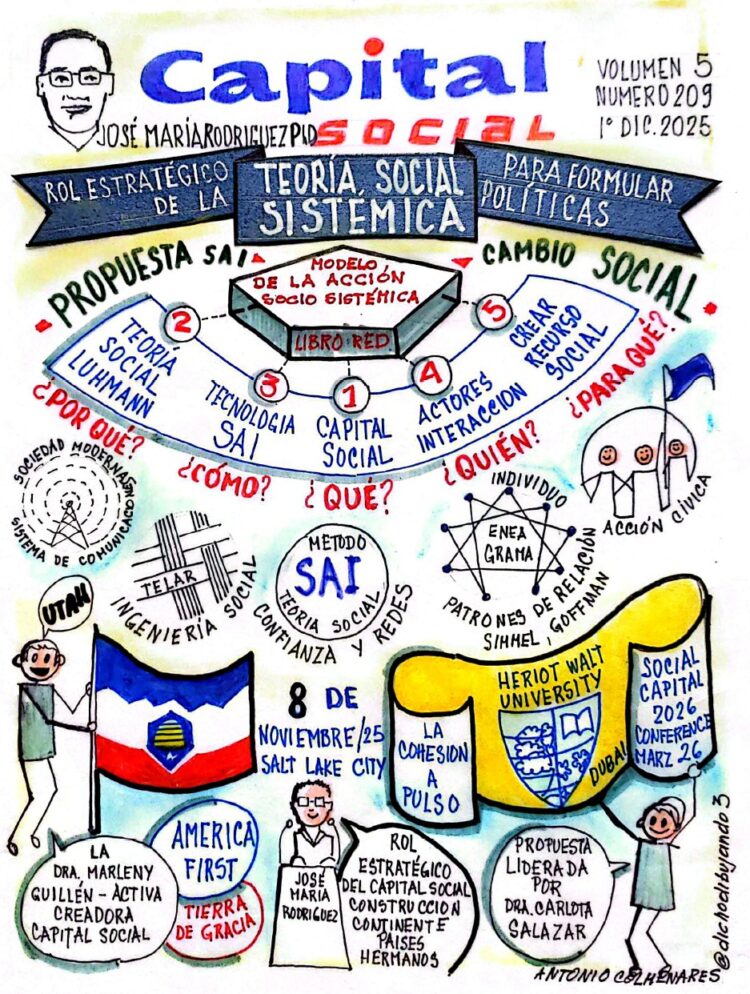 Capital
SOCIAL
JOSÉ MARÍA RODRIGUEZ PhD
VOLUMEN 5
NUMERO 209
1º DIC. 2025
ROL ESTRATÉGICO
DE LA
TEORÍA SOCIAL
SISTÉMICA
PARA FORMULAR
POLÍTICAS
PROPUESTA SAI
CAMBIO SOCIAL
MODELO
DE LA ACCIÓN
SOCIO SISTÉMICA
LIBRO RED
2
3
1
4
5
TEORÍA
SOCIAL
LUHMANN
TECNOLOGIA
SAI
CAPITAL
SOCIAL
ACTORES
INTERACCION
CREAR
RECURSO
SOCIAL
¿POR QUÉ?
¿CÓMO?
¿QUÉ?
¿QUIÉN?
¿PARA QUÉ?
SOCIEDAD MODERNA
SISTEMA DE COMUNICACION
TELAR
INGENIERÍA SOCIAL
METODO
SAI
TEORIA SOCIAL
CONFIANZA Y REDES
INDIVIDUO
ENEA
GRAMA
PATRONES DE RELACIÓN
SIMMEL, GOFFMAN
ACCIÓN CÍVICA
UTAH
8 DE
NOVIEMBRE/25
SALT LAKE CITY
LA
COHESION
A
PULSO
HERIOT WALT
UNIVERSITY
DUBAI
SOCIAL
CAPITAL
2026
CONFERENCE
MARZ 26
LA
DRA. MARLENY
GUILLÉN - ACTIVA
CREADORA
CAPITAL SOCIAL
AMERICA
FIRST
TIERRA
DE GRACIA
JOSÉ
MARIA
RODRIGUEZ
ROL
ESTRATÉGICO
DEL CAPITAL SOCIAL
CONSTRUCCION
CONTINENTE
PAISES
HERMANOS
PROPUESTA
LIDERADA
POR
DRA. CARLOTA
SALAZAR
@dichodibujando3
ANTONIO COLMENARES